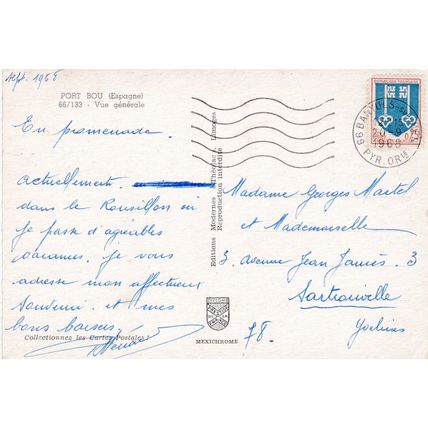 sept. 1968
PORT BOU (Espagne)
66/133 - Vue générale
En promenade
actuellement
dans le Rousillon où
je passe d'agréables
vacances. je vous
adresse mon affectueux
souvenir et mes
bons baisers
Collectionnez les Cartes Postales !
Editions Modernes Théojac, Limoges
Reproduction interdite
MEXICHROME
REPUBLIQUE FRANÇAISE
0,25
66 BANYULS-s
20 -9
1968
PYR. ORles
Madame Georges Martel
et Mademoiselle
3, avenue Jean Jaurès. 3
Sartrouville
78. Yvelines